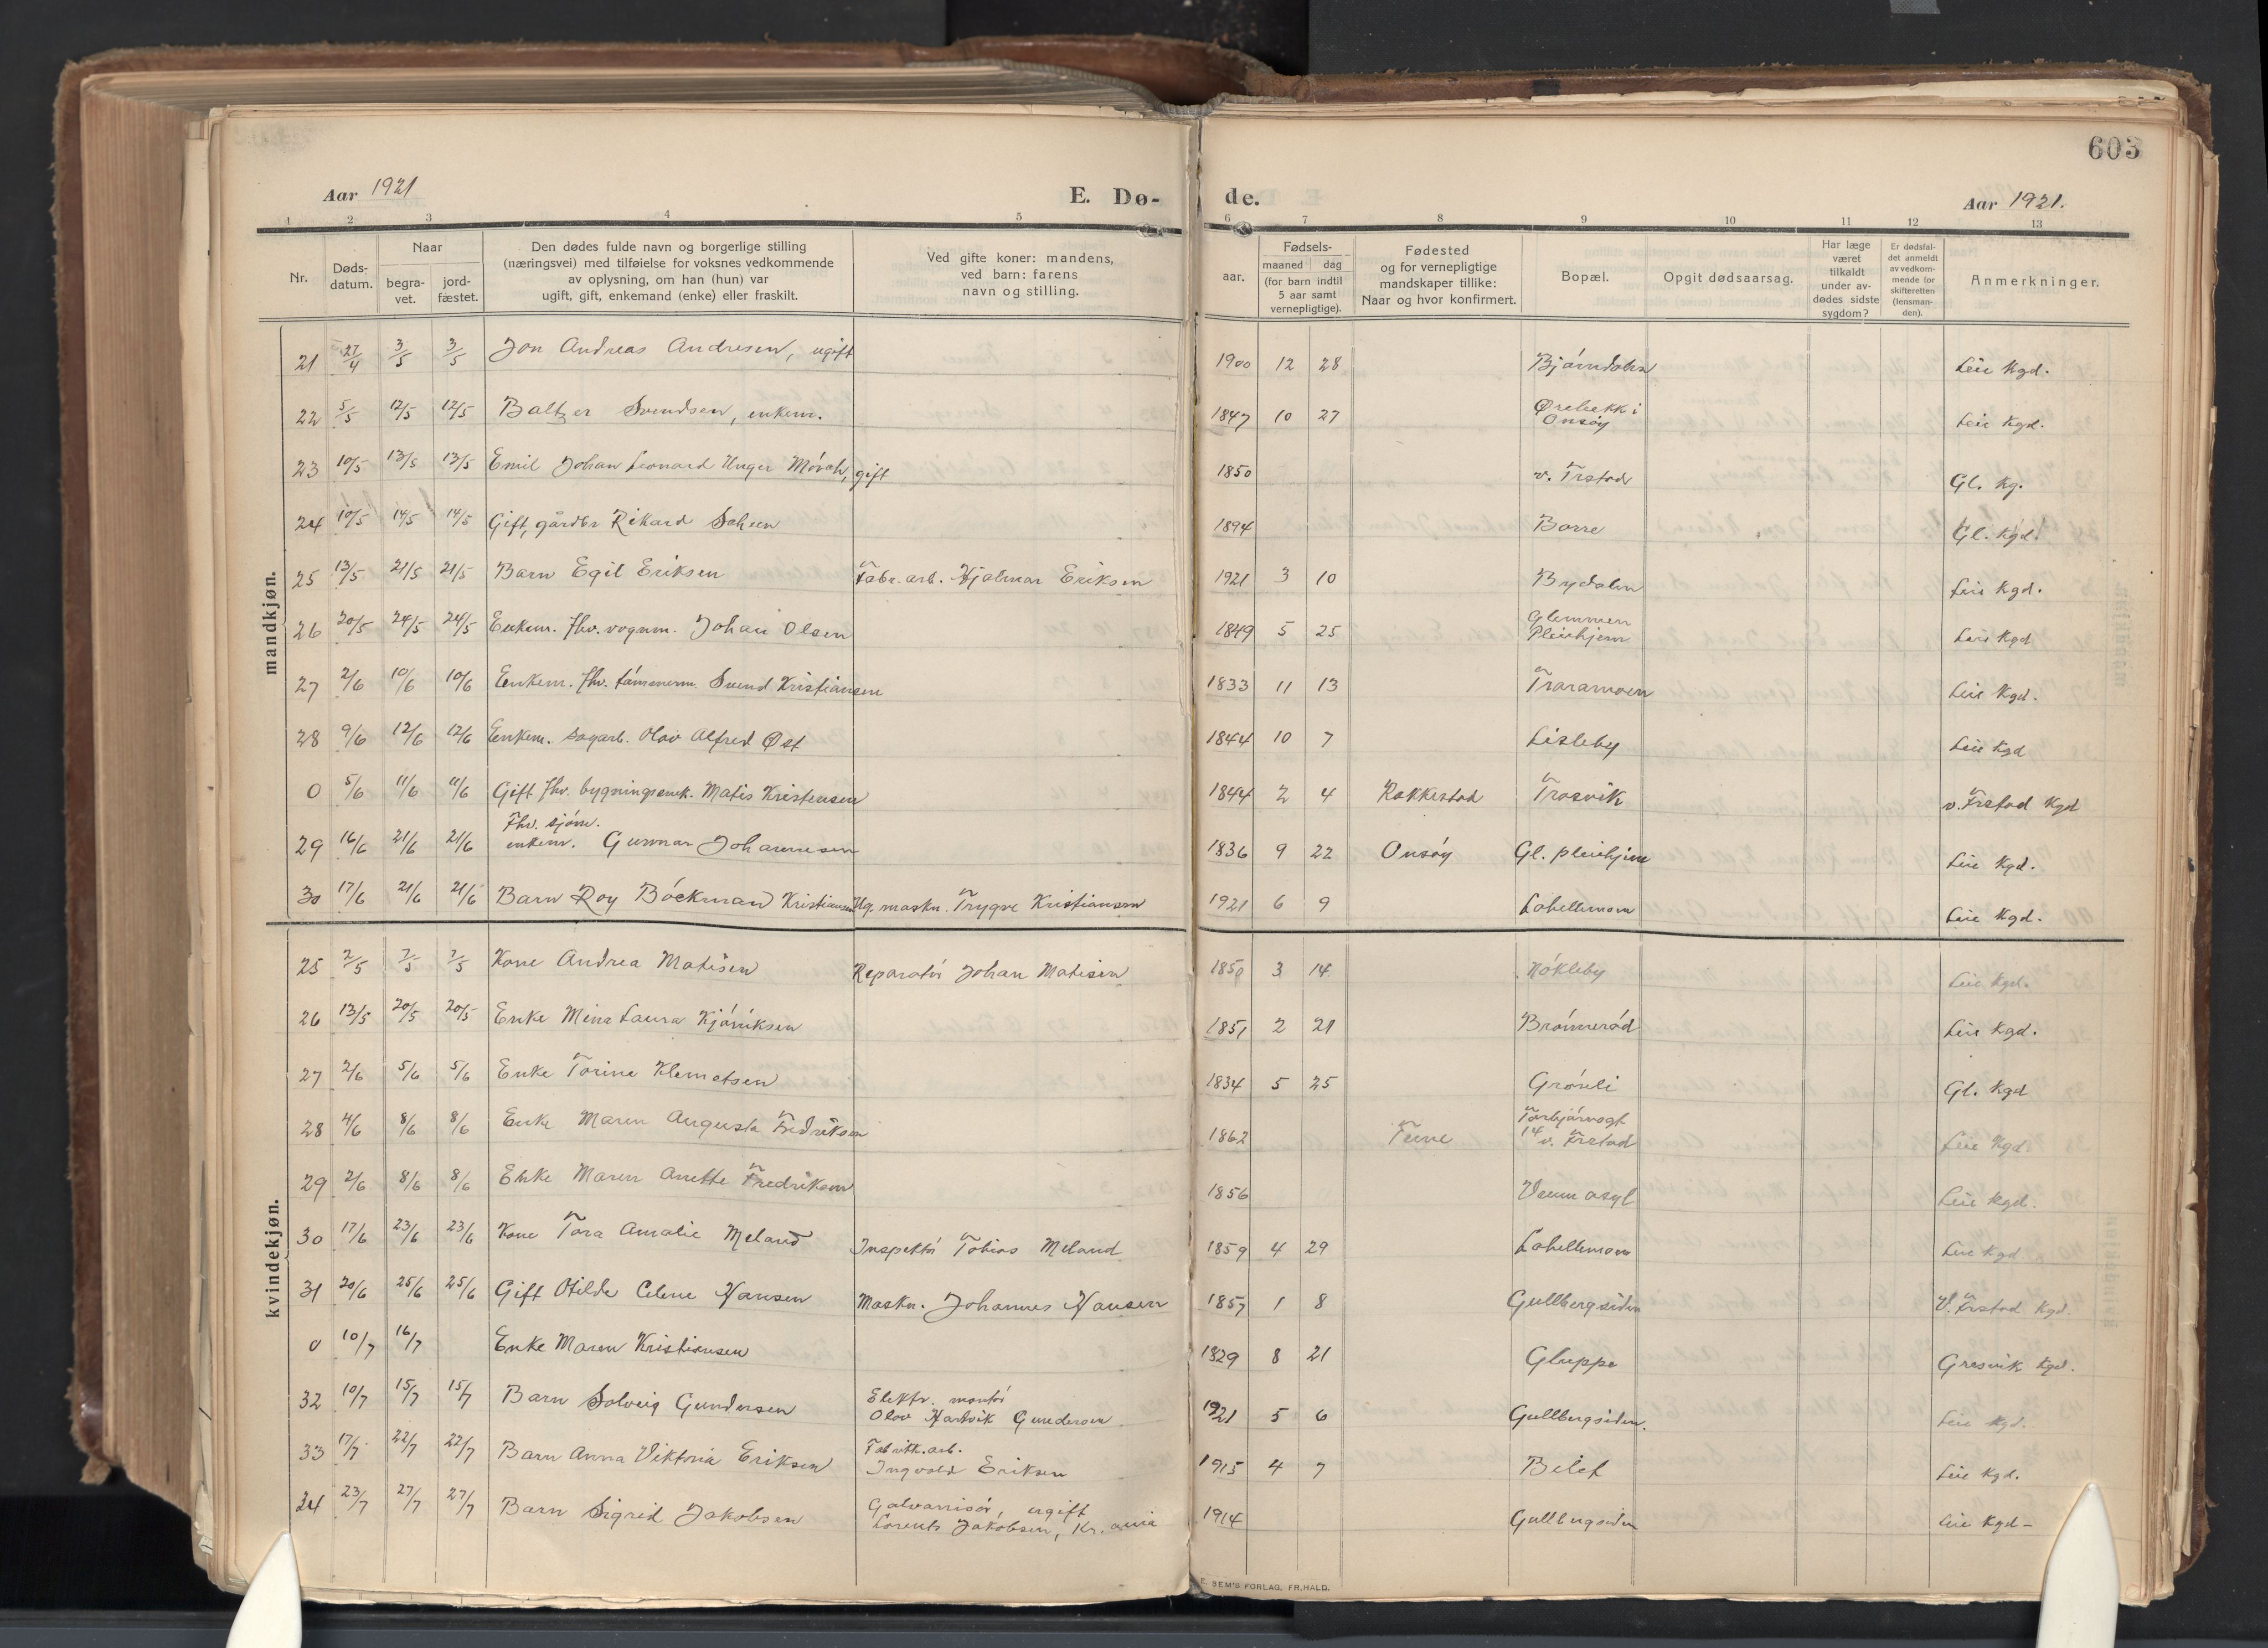 603
Aar 1921
E. Dø-
de.
Aar 1921.
1 2 3 4 5 6 7 8 9 10 11 12 13
Nr.
Døds-
datum.
Naar
begra-
vet.
jord-
fæstet.
Den dødes fulde navn og borgerlige stilling
(næringsvei) med tilføielse for voksnes vedkommende
av oplysning, om han (hun) var
ugift, gift, enkemand (enke) eller fraskilt.
Ved gifte koner: mandens,
ved barn: farens
navn og stilling.
aar.
Fødsels-
maaned dag
(for barn indtil
5 aar samt
vernepligtige).
Fødested
og for vernepligtige
mandskaper tillike:
Naar og hvor konfirmert.
Bopæl.
Opgit dødsaarsag.
Har læge
været
tilkaldt
under av-
dødes sidste
sygdom?
Er dødsfal-
det anmeldt
av vedkom-
mende for
skifteretten
(lensman-
den).
Anmerkninger.
mandkjøn.
21 27/4 3/5 3/5 Jon Andreas Andresen, ugift 1900 12 28 Bjørndalen Leie Kgd.
22 5/5 12/5 12/5 Baltzer Svendsen, enkem. 1847 10 27 Ørebekk i
Onsøy Leie Kgd.
23 10/5 13/5 13/5 Emil Johan Leonard Unger Mørch, gift 1850 v. Frstad Gl. Kg.
24 10/5 14/5 14/5 Gift, gårdbr Rikard Scheen 1894 Borre Gl. Kgd.
25 13/5 21/5 21/5 Barn Egil Eriksen Fabr. arb. Hjalmar Eriksen 1921 3 10 Brydalen Leie Kgd.
26 20/5 24/5 24/5 Enkem. fhv. vognm. Johan Olsen 1849 5 25 Glemmen
Pleiehjem Leie Kgd
27 2/6 10/6 10/6 Enkem. fhv. tømmerm. Svend Kristiansen 1833 11 13 Traramoen Leie Kgd.
28 9/6 12/6 12/6 Enkem. sagarb. Olav Alfred Øst 1844 10 7 Lisleby Leie Kgd
0 5/6 11/6 11/6 Gift fhv. bygningssnek. Matis Kristensen 1844 2 4 Rakkestad Trosvik v. Frstad Kgd
Fhv. sjøm.
29 16/6 21/6 21/6 enkem. Gunnar Johannesen 1836 9 22 Onsøy Gl. pleiehjem Leie Kgd.
30 17/6 21/6 21/6 Barn Roy Böckman Kristiansen Ug. maskn. Trygve Kristiansen 1921 6 9 Lahellemoen Leie Kgd.
kvindekjøn.
25 2/5 7/5 7/5 Kone Andrea Matisen Reparatør Johan Matisen 1850 3 14 Nøkleby Leie Kgd.
26 13/5 20/5 20/5 Enke Mina Laura Kjøniksen 1851 2 21 Brønnerød Leie Kgd.
27 2/6 5/6 5/6 Enke Torine Klemetsen 1834 5 25 Grønli Gl. Kgd
28 4/6 8/6 8/6 Enke Maren Augusta Fredriksen 1862 Torbjørnsgt
14 v. Frstad Leie Kgd.
29 2/6 8/6 8/6 Enke Maren Anette Fredriksen 1856 Veum asyl Leie Kgd.
30 17/6 23/6 23/6 Kone Tora Amalie Meland Inspektør Tobias Meland 1859 4 29 Lahellemoen Leie Kgd
31 20/6 25/6 25/6 Gift Otilde Celene Hansen Maskn. Johannes Hansen 1857 1 8 Gullbergsiden V. Frstad Kgd.
0 10/7 16/7 Enke Maren Kristiansen 1829 8 21 Gluppe Gresvik Kgd.
32 10/7 15/7 15/7 Barn Solveig Gundersen Elektr. montør
Olav Hartvik Gundersen 1921 5 6 Gullbergsiden. Leie Kgd.
33 17/7 22/7 22/7 Barn Anna Viktoria Eriksen Fabrikk.arb.
Ingvald Eriksen 1915 4 7 Leie Kgd.
24 23/7 27/7 27/7 Barn Sigrid Jakobsen Galvanisør, ugift
Lorents Jakobsen, Kr.ania 1914 Gullbergsiden Leie Kgd-
E. SEM'S FORLAG, FR.HALD.